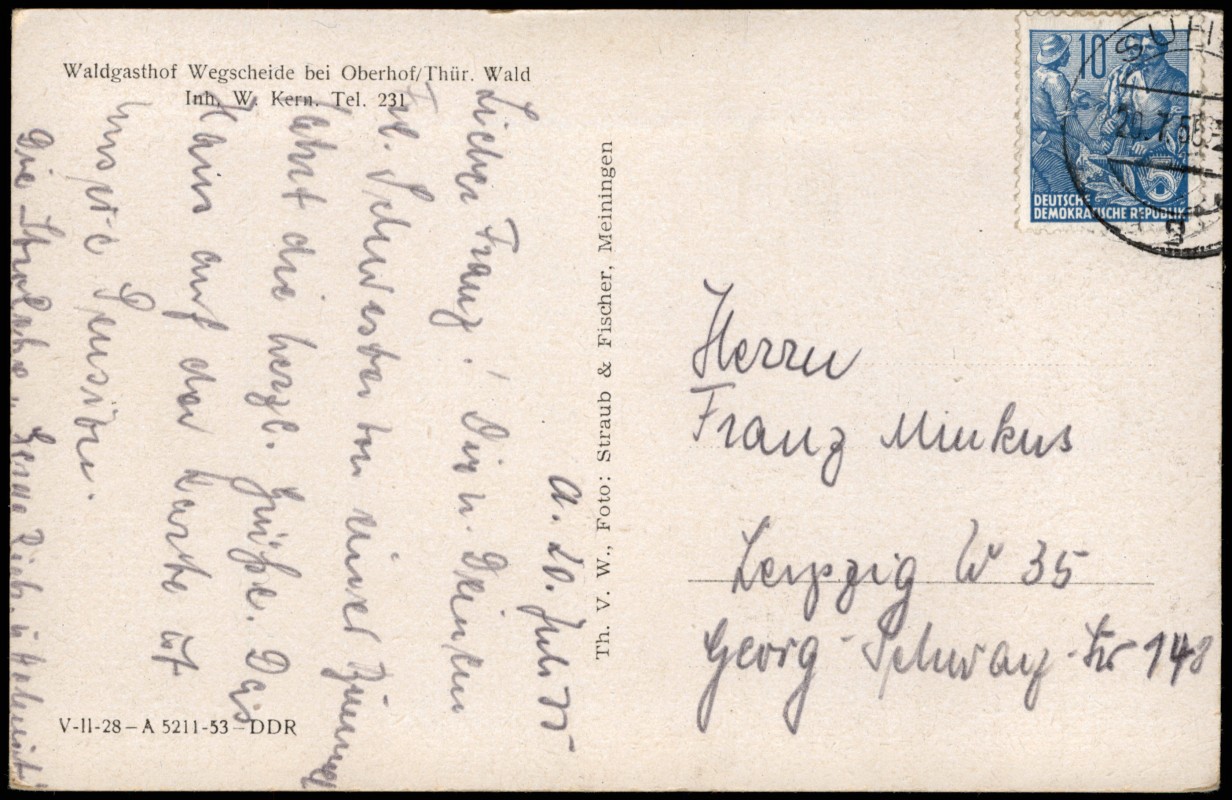 Waldgasthof Wegscheide bei Oberhof/Thür. Wald
Inh. W. Kern. Tel. 231
a. 20. Juli 55
Lieber Franz! Dir u. Deinen
Frl. Schwestern einer
die herzl. Grüße. Das
Haus auf der Karte ist
unsere Pension.
Die
V-II-28 – A 5211-53 – DDR
Th. V. W., Foto: Straub & Fischer, Meiningen
10
DEUTSCHE
DEMOKRATISCHE REPUBLIK
SUHL
20.7.55
Herrn
Franz Minkus
Leipzig W 35
Georg-Schwarz-Str 148